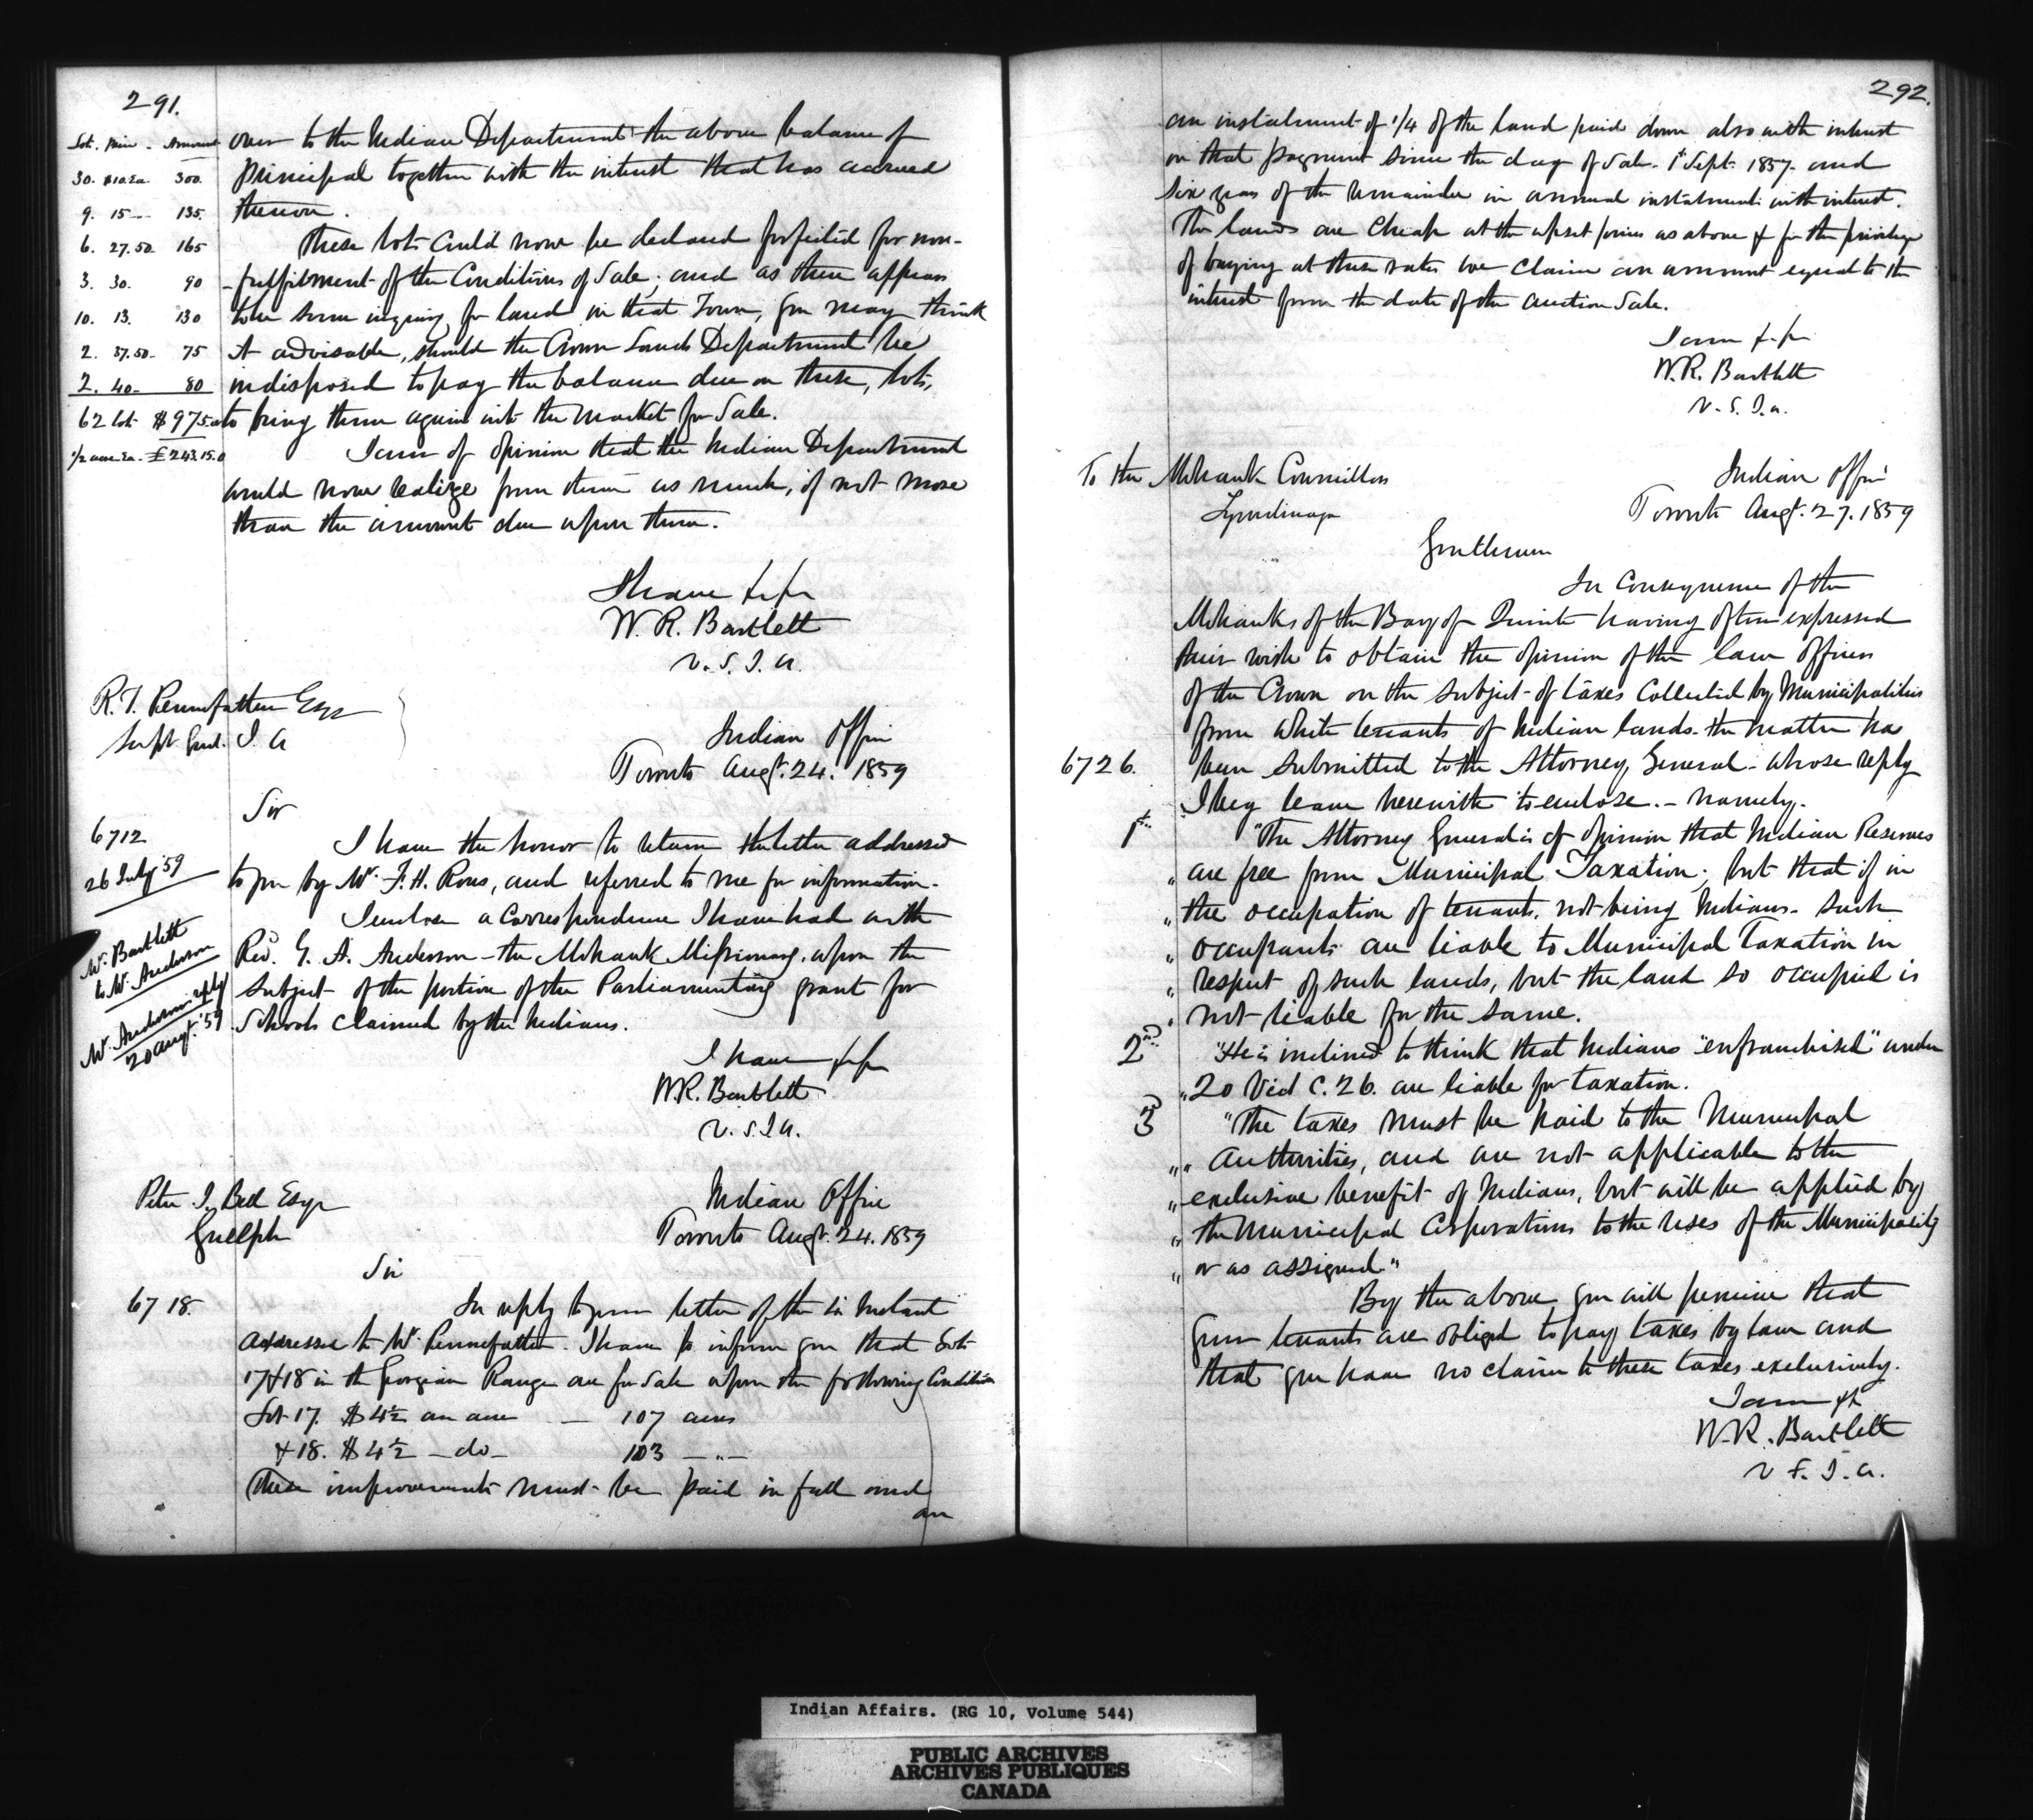 291.
Lot. Price. Amount
30. $10 Ea. 300.
9. 15 — 135.
6. 27.50. 165
3. 30. 90
10. 13. 130
2. 37.50. 75
2. 40 — 80
62 lots $975.00
1/2 acre Ea. £243.15.0
over to the Indian Department the above balance of
principal together with the interest that has accrued
thereon.
These lots could now be declared forfeited for non-
-fulfilment of the Conditions of Sale; and as there appears
to be some inquiry for land in that Town, you may think
it advisable, should the Crown Lands Department be
indisposed to pay the balance due on these lots,
to bring them again into the market for Sale.
I am of opinion that the Indian Department
would now realize from them as much, if not more
than the amount due upon them.
I have &c &c
W. R. Bartlett
V. S. I. A.
R. T. Pennefather Esqr
Supt. Genl. I. A
Indian Office
Toronto Augt. 24. 1859
Sir
6712
26 July '59
Mr. Bartlett
to Mr. Anderson
Mr. Anderson reply
20 Augt. '59
I have the honor to return the letter addressed
to you by Mr. F. H. Rous, and referred to me for information.
I enclose a correspondence I have had with
Revd. G. A. Anderson - the Mohawk Missionary, upon the
subject of the portion of the Parliamentary grant for
Schools claimed by the Indians.
I have &c &c
W. R. Bartlett
V. S. I. A.
Peter I. Bell Esqr
Guelph
Indian Office
Toronto Augt. 24. 1859
Sir
6718.
In reply to your letter of the instant
addressed to Mr. Pennefather. I have to inform you that Lots
17 & 18 in the Georgian Range are for Sale upon the following Conditions
Lot 17. $4½ an acre — 107 acres
& 18. $4½ — do — 103 — " —
These improvements must be paid in full and
an
292.
an instalment of 1/4 of the land paid down also with interest
on that payment since the day of Sale. 1st Sept. 1857. and
six years of the remainder in annual instalments with interest.
The lands are cheap at the upset prices as above & for the privilege
of buying at these rates we claim an amount equal to the
interest from the date of the auction Sale.
I am &c &c
W. R. Bartlett
V. S. I. A.
To the Mohawk Councillors
Tyendinaga
Indian Office
Toronto Augt. 27. 1859
Gentlemen
In Consequence of the
Mohawks of the Bay of Quinte having often expressed
their wish to obtain the opinion of the law officers
of the Crown on the subject of taxes collected by Municipalities
from white tenants of Indian lands the matter has
6726. been submitted to the Attorney General - whose reply
I beg leave herewith to enclose. - namely.
1st. "The Attorney General is of opinion that Indian Reserves
" are free from Municipal Taxation; but that if in
" the occupation of tenants, not being Indians - such
" occupants are liable to Municipal Taxation in
" respect of such lands, but the land so occupied is
" not liable for the same.
2nd. "He is inclined to think that Indians "enfranchised" under
" 20 Vict C. 26. are liable for taxation.
3rd "The taxes must be paid to the Municipal
" " Authorities, and are not applicable to the
" exclusive benefit of Indians, but will be applied by
" the Municipal Corporations to the uses of the Municipality
" or as assigned"
By the above you will perceive that
your tenants are obliged to pay taxes by law and
that you have no claim to these taxes exclusively.
I am &c
W. R. Bartlett
V. S. I. A.
Indian Affairs. (RG 10, Volume 544)
PUBLIC ARCHIVES
ARCHIVES PUBLIQUES
CANADA